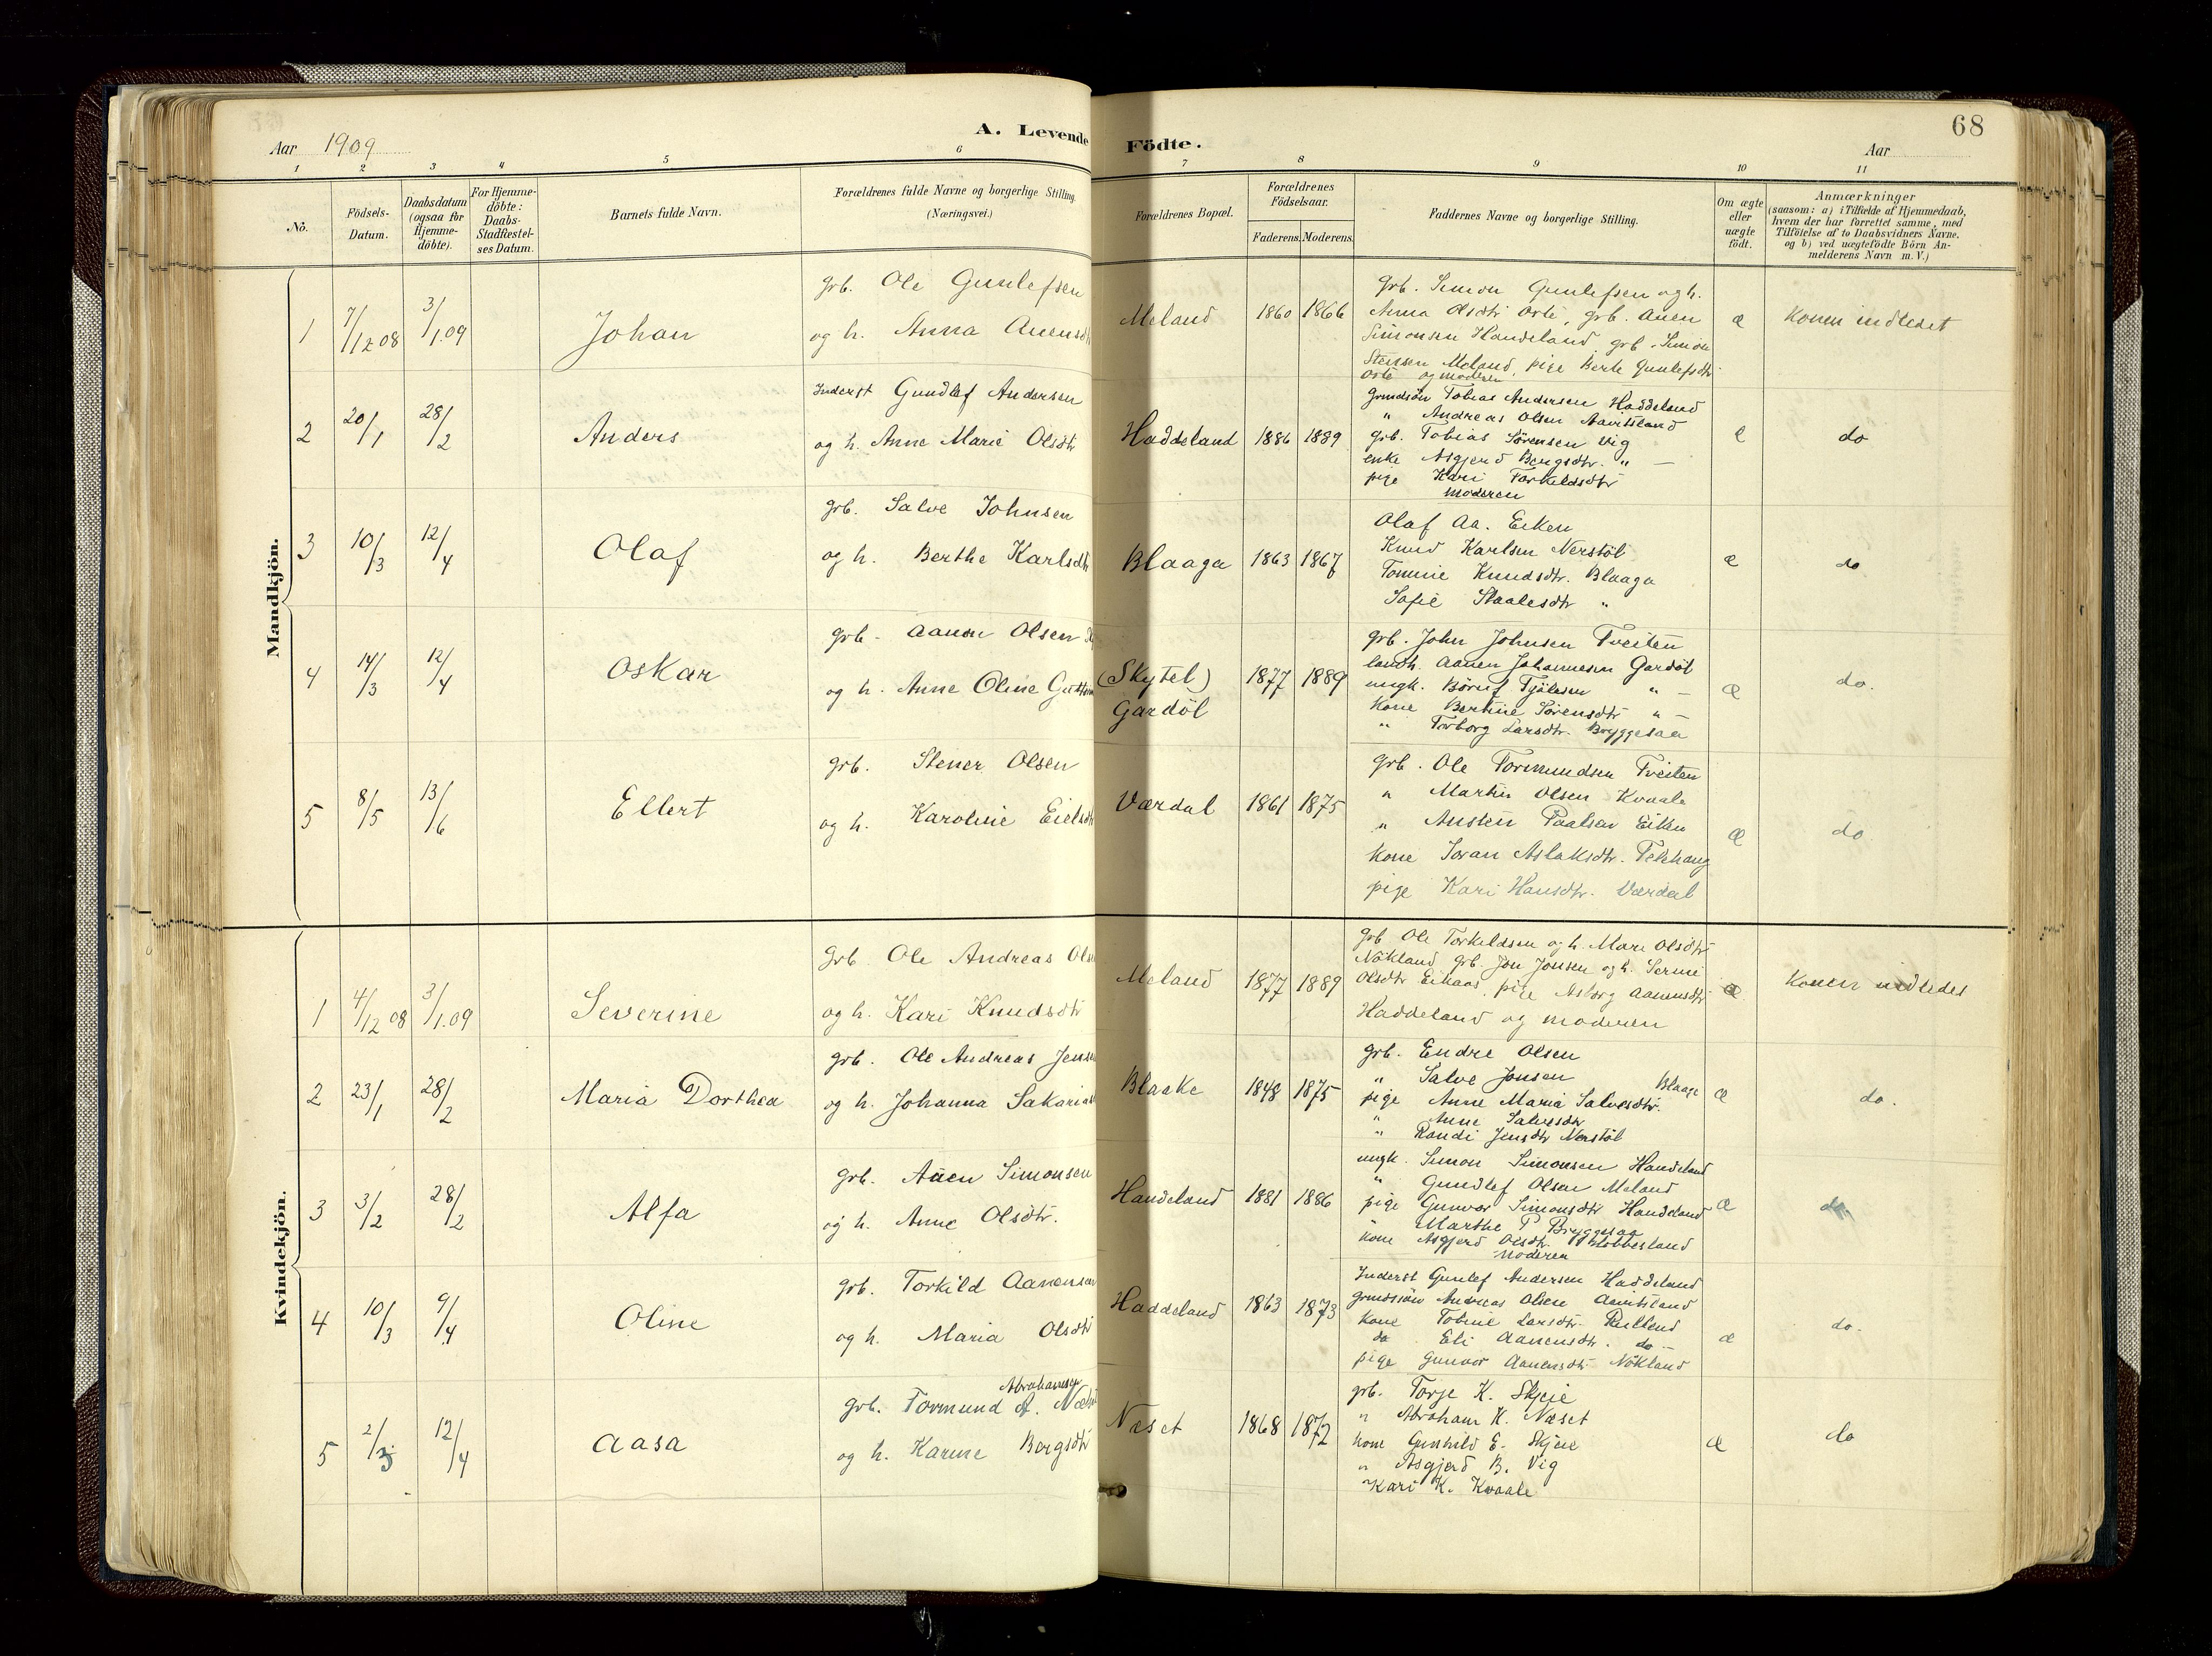 68
Aar 1909
A. Levende Födte.
Aar
1 2 3 4 5 6 7 8 9 10 11
No.
Födsels-Datum.
Daabsdatum (ogsaa for Hjemme-döbte).
For Hjemme-döbte: Daabs-Stadfæstel-ses Datum.
Barnets fulde Navn.
Forældrenes fulde Navne og borgerlige Stilling. (Næringsvei.)
Forældrenes Bopæl.
Forældrenes Födselsaar.
Faderens. Moderens.
Faddernes Navne og borgerlige Stilling.
Om ægte eller uægte födt.
Anmærkninger
(saasom: a) i Tilfælde af Hjemmedaab,
hvem der har forrettet samme, med
Tilföielse af to Daabsvidners Navne.
og b) ved uægtefödte Börn An-
melderens Navn m. V.)
Mandkjön.
1 7/12 08 3/1.09 Johan
grb. Ole Gunlefsen
og h. Anna Auensdt
Meland 1860 1866
grb. Simon Gunlefsen og h.
Anna Olsdtr Oste, grb. Auen
Simonsen Handeland, grb. Simon
Stensen Meland, pige Berte Gunlefsdtr
Oste og moderen
æ
Konen indledet
2 20/1 28/2 Anders
Inderst Gundlef Andersen
og h. Anne Marie Olsdtr
Haddeland 1886 1889
Grmdsön Tobias Andersen Haddeland
" Andreas Olsen Aavitsland
grb. Tobias Sörensen Vig
enke Asgjerd Bergsdtr. " —
pige Kari Torkildsdtr
moderen
æ
do
3 10/3 12/4 Olaf
grb. Salve Johnsen
og h. Berthe Karlsdt
Blaaga 1863 1867
Olaf Aa. Eiken
Knud Karlsen Nerstöl
Tomine Knudsdtr. Blaaga
Sofie Staalesdtr "
æ
do
4 14/3 12/4 Oskar
grb. Aanon Olsen
og h. Anne Oline
(Skytel) Gardöl 1877 1889
grb. John Johnsen Tveiten
landh. Aanen Johannesen Gardöl
ungk. Börulf Tjölesen " —
Kone Bertine Sörensdtr " —
" Torborg Larsdtr. Bryggesaa
æ
do.
5 8/5 13/6 Ellert
grb. Stener Olsen
og h. Karoline Eielsdt
Værdal 1861 1875
grb. Ole Tormundsen Tveiten
" Martin Olsen Kvaale
" Austen Paalsen Eiken
kone Joran Aslaksdtr. Telehaug
pige Kari Hansdtr. Værdal
æ
do.
Kvindekjön.
1 4/12 08 3/1.09 Severine
Grb Ole Andreas Ols
og h. Kari Knudsdtr
Meland 1877 1889
grb Ole Torkildsen og h. Mari Olsdtr
Nökland grb. Jon Jonsen og h. Serine
Olsdtr Eikaas, pige Asborg Aanensdtr
Haddeland og moderen
æ
Konen indledes
2 23/1 28/2 Maria Dorthea
grb. Ole Andreas Jens
og h. Johanna Sakarias
Blaake 1848 1875
grb. Endre Olsen
" Salve Jonsen Blaage
pige Anne Maria Salvesdtr.
" Anne Salvesdtr
" Randi Jensdtr Nerstöl
æ
do.
3 3/2 28/2 Alfa
grb. Auen Simonsen
og h. Anne Olsdtr.
Handeland 1881 1886
ungk. Simon Simonsen Handeland
" Gundlef Olsen Meland
pige Gunvor Simonsdtr Handeland
" Marthe P Bryggesaa
kone Asgjerd Olsdtr.
Moderen
æ
do
4 10/3 9/4 Oline
grb. Torkild Aanensen
og h. Maria Olsdtr
Haddeland 1863 1873
Inderst Gunlef Andersen Haddeland
grmdssön Andreas Olsen Aavitsland
kone Tobine Larsdtr.
do Eli Aanensdtr. do —
pige Gunvor Aanensdtr Nökland
æ
do.
5 2/3 12/4 Aasa
Abrahamsen
grb. Tormund A.
og h. Karine Bergsdtr
Næset 1868 1872
grb. Torje K. Skjeie
" Abraham K. Næset
kone Gunhild E. Skjeie
" Asgjerd B. Vig
" Kari K. Kvaale
æ
do